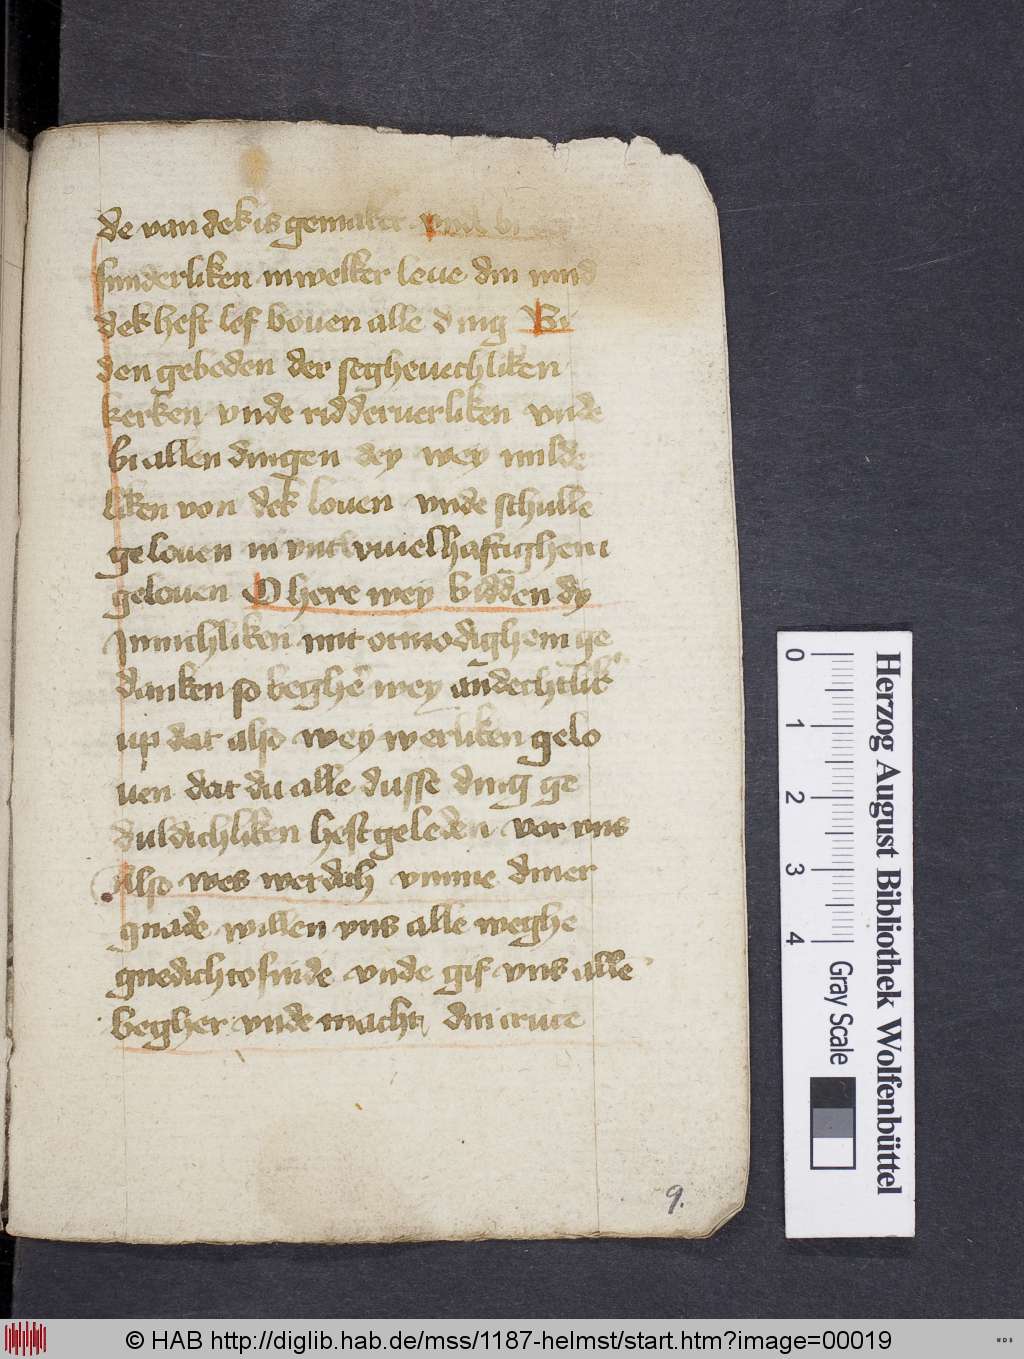 de van dek is gemaket vnde bi
sunderliken in welker leue din mud
dek heft lef bouen alle ding Bi
den geboden der segheuechliken
kerken vnde ridderuerliken vnde
bi allen dingen dey wey milde
liken von dek louen vnde schulle
gelouen in vntwiuelhaftighem
gelouen O here wey bidden dy
Innichliken mit otmodighem ge
danken so beghe wey andechtlik
up dat also wey werliken gelo
uen dat du alle dusse ding ge
duldichliken hest geleden vor vns
Also wes werdich vmme diner
gnade willen vns alle weghe
gnedich to sinde vnde gif vns alle
begher vnde macht din cruce
9.
Herzog August Bibliothek Wolfenbüttel
0 1 2 3 4
Gray Scale
© HAB http://diglib.hab.de/mss/1187-helmst/start.htm?image=00019
WDB